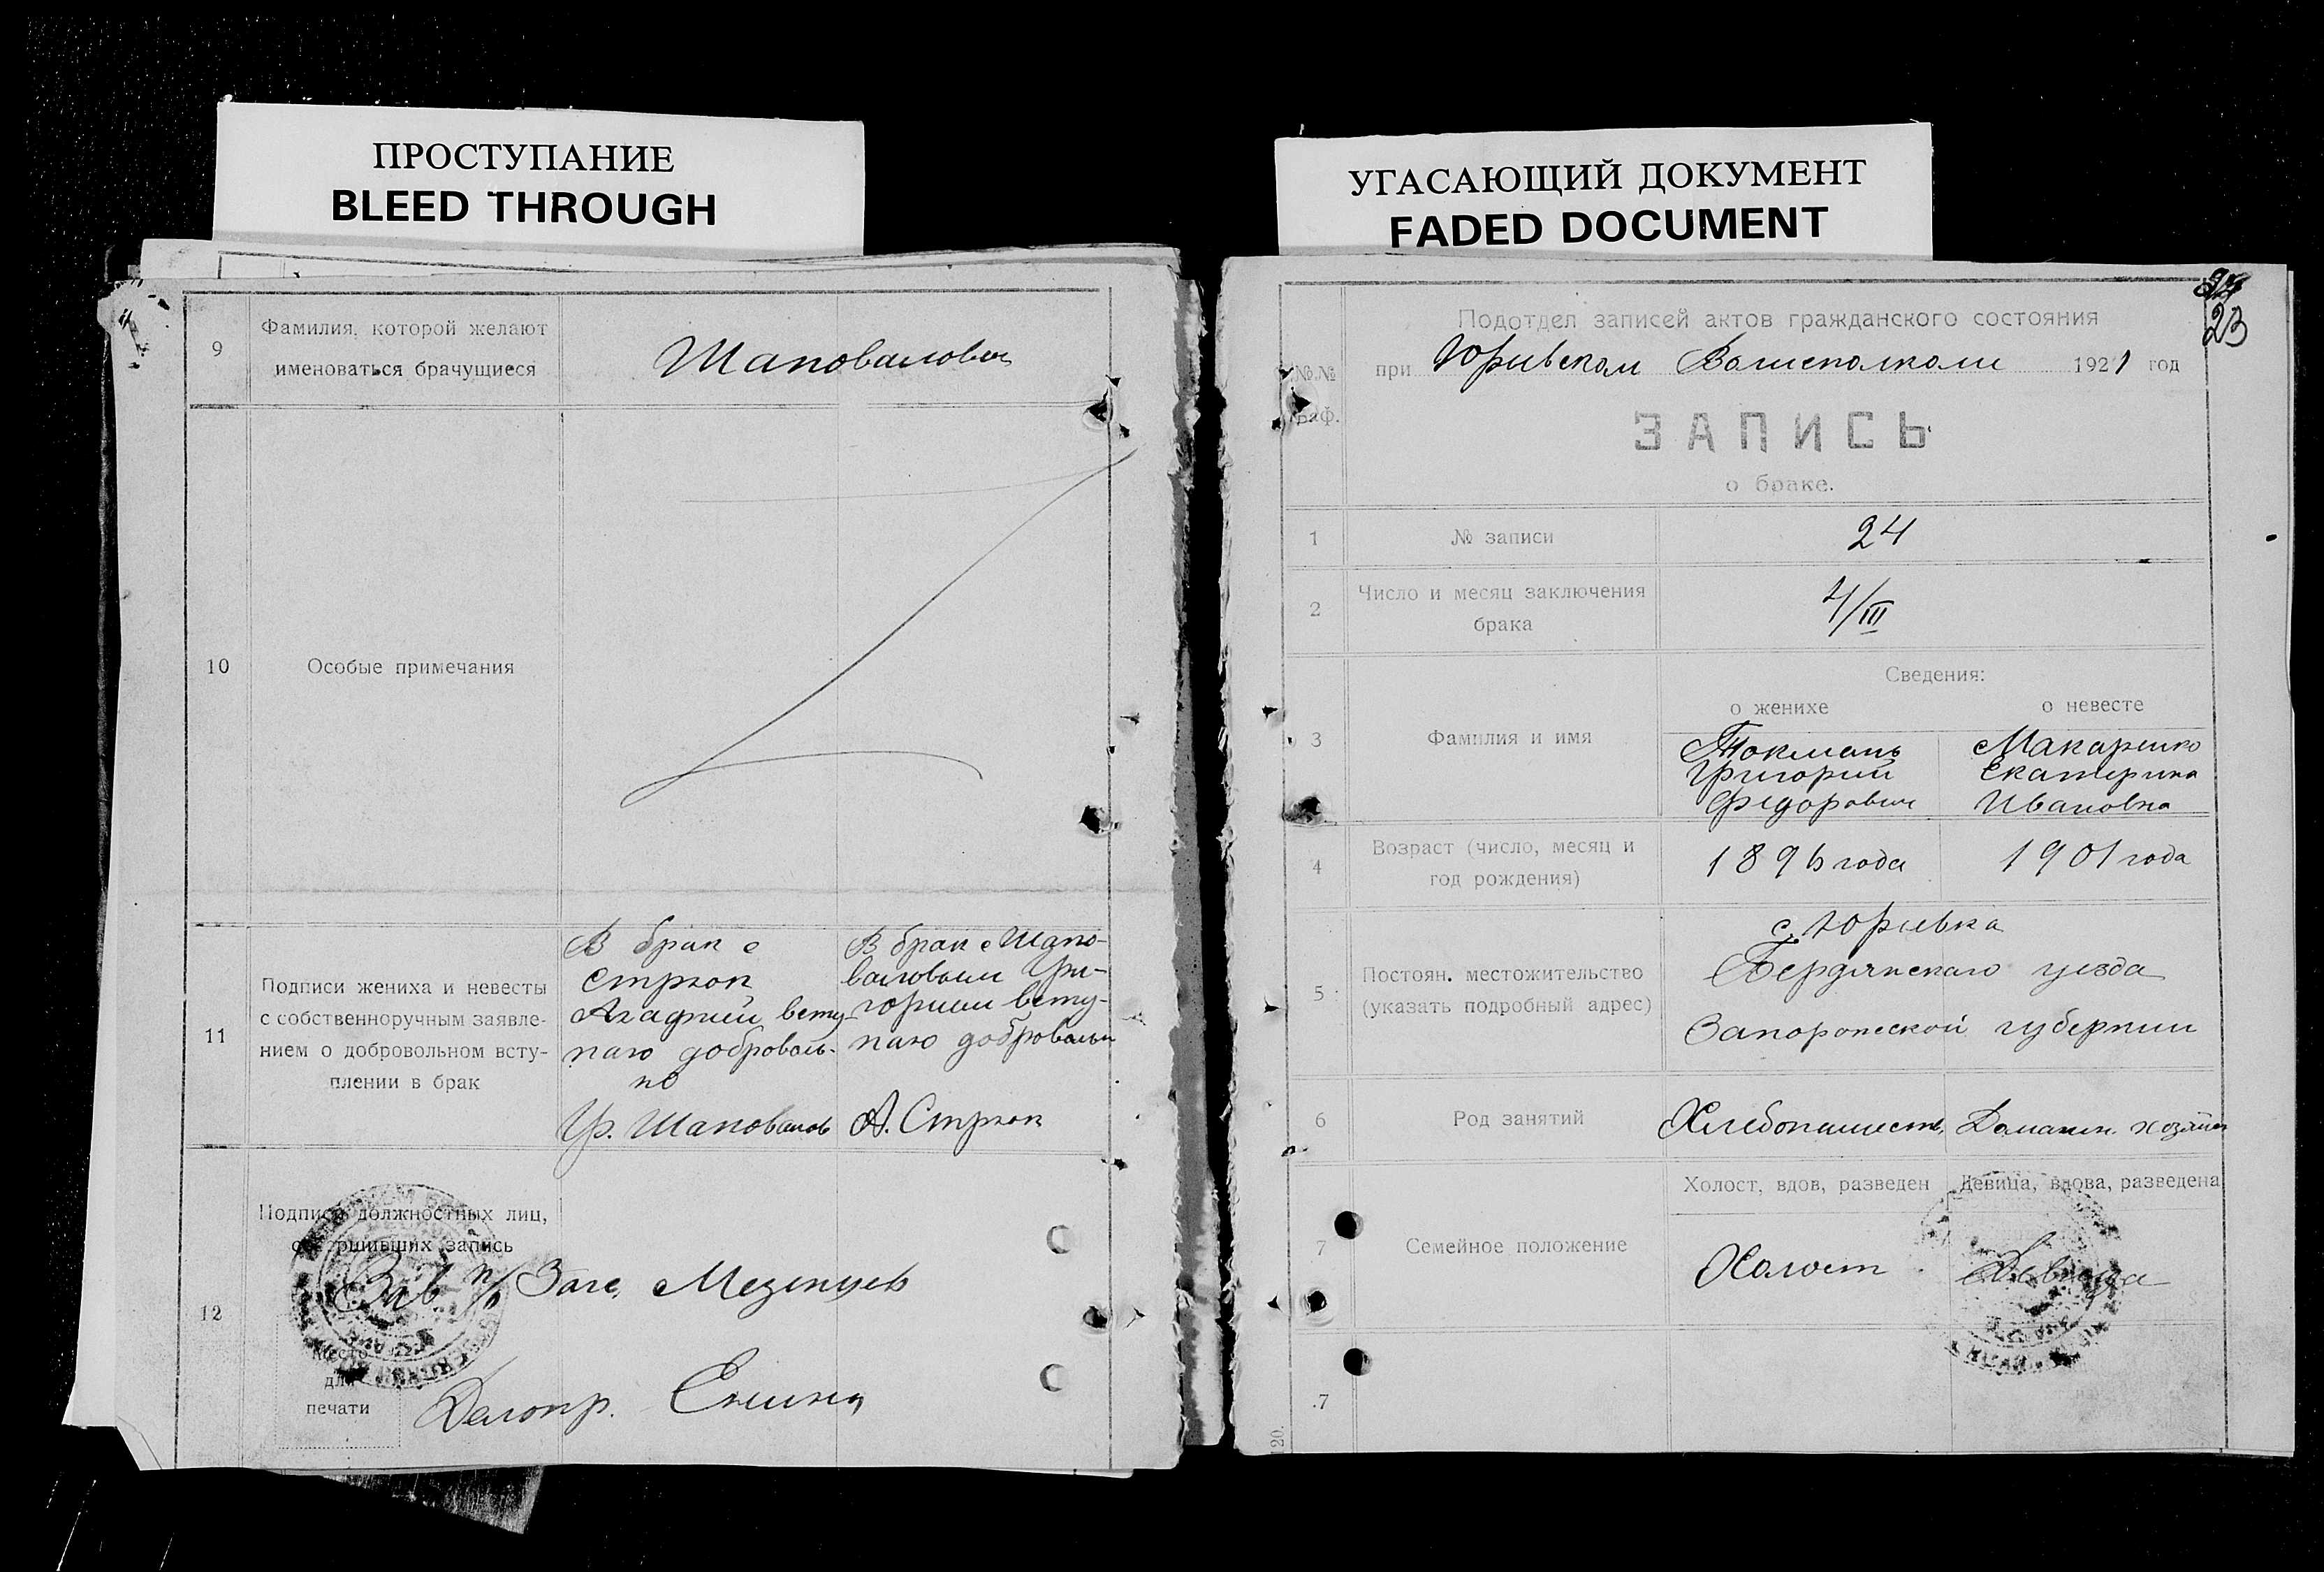 ПРОСТУПАНИЕ
BLEED THROUGH
9
Фамилия, которой желают
именоваться брачущиеся
Шаповаловы
10
Особые примечания
11
Подписи жениха и невесты
с собственноручным заявле-
нием о добровольном всту-
плении в брак
В брак с
Стрюк
Агафией всту-
паю доброволь-
но
Гр. Шаповалов
В брак с Шапо-
валовым Гри-
горием всту-
паю добровольн
А. Стрюк
12
Подписи должностных лиц,
совершивших запись
Зав п/о Загс. Мезенцев
Место
для
печати
Делопр.
УГАСАЮЩИЙ ДОКУМЕНТ
FADED DOCUMENT
23
Подотдел записей актов гражданского состояния
№№
граф.
при Юрьевском Волисполкоме 1921 год
ЗАПИСЬ
о браке.
1
№ записи
24
2
Число и месяц заключения
брака
4/III
Сведения:
о женихе
о невесте
3
Фамилия и имя
Токмань
Григорий
Федорович
Макаренко
Екатерина
Ивановна
4
Возраст (число, месяц и
год рождения)
1896 года
1901 года
5
Постоян. местожительство
(указать подробный адрес)
с. Юрьевка
Бердянскаго уезда
Запорожской губернии
6
Род занятий
Хлебопашеств.
Домашн. хозяйст
7
Семейное положение
Холост, вдов, разведен
Девица, вдова, разведена
Холост
Девица
7
120.